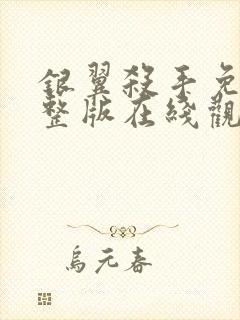 銀翼殺手免
整版在綫觀
烏元春